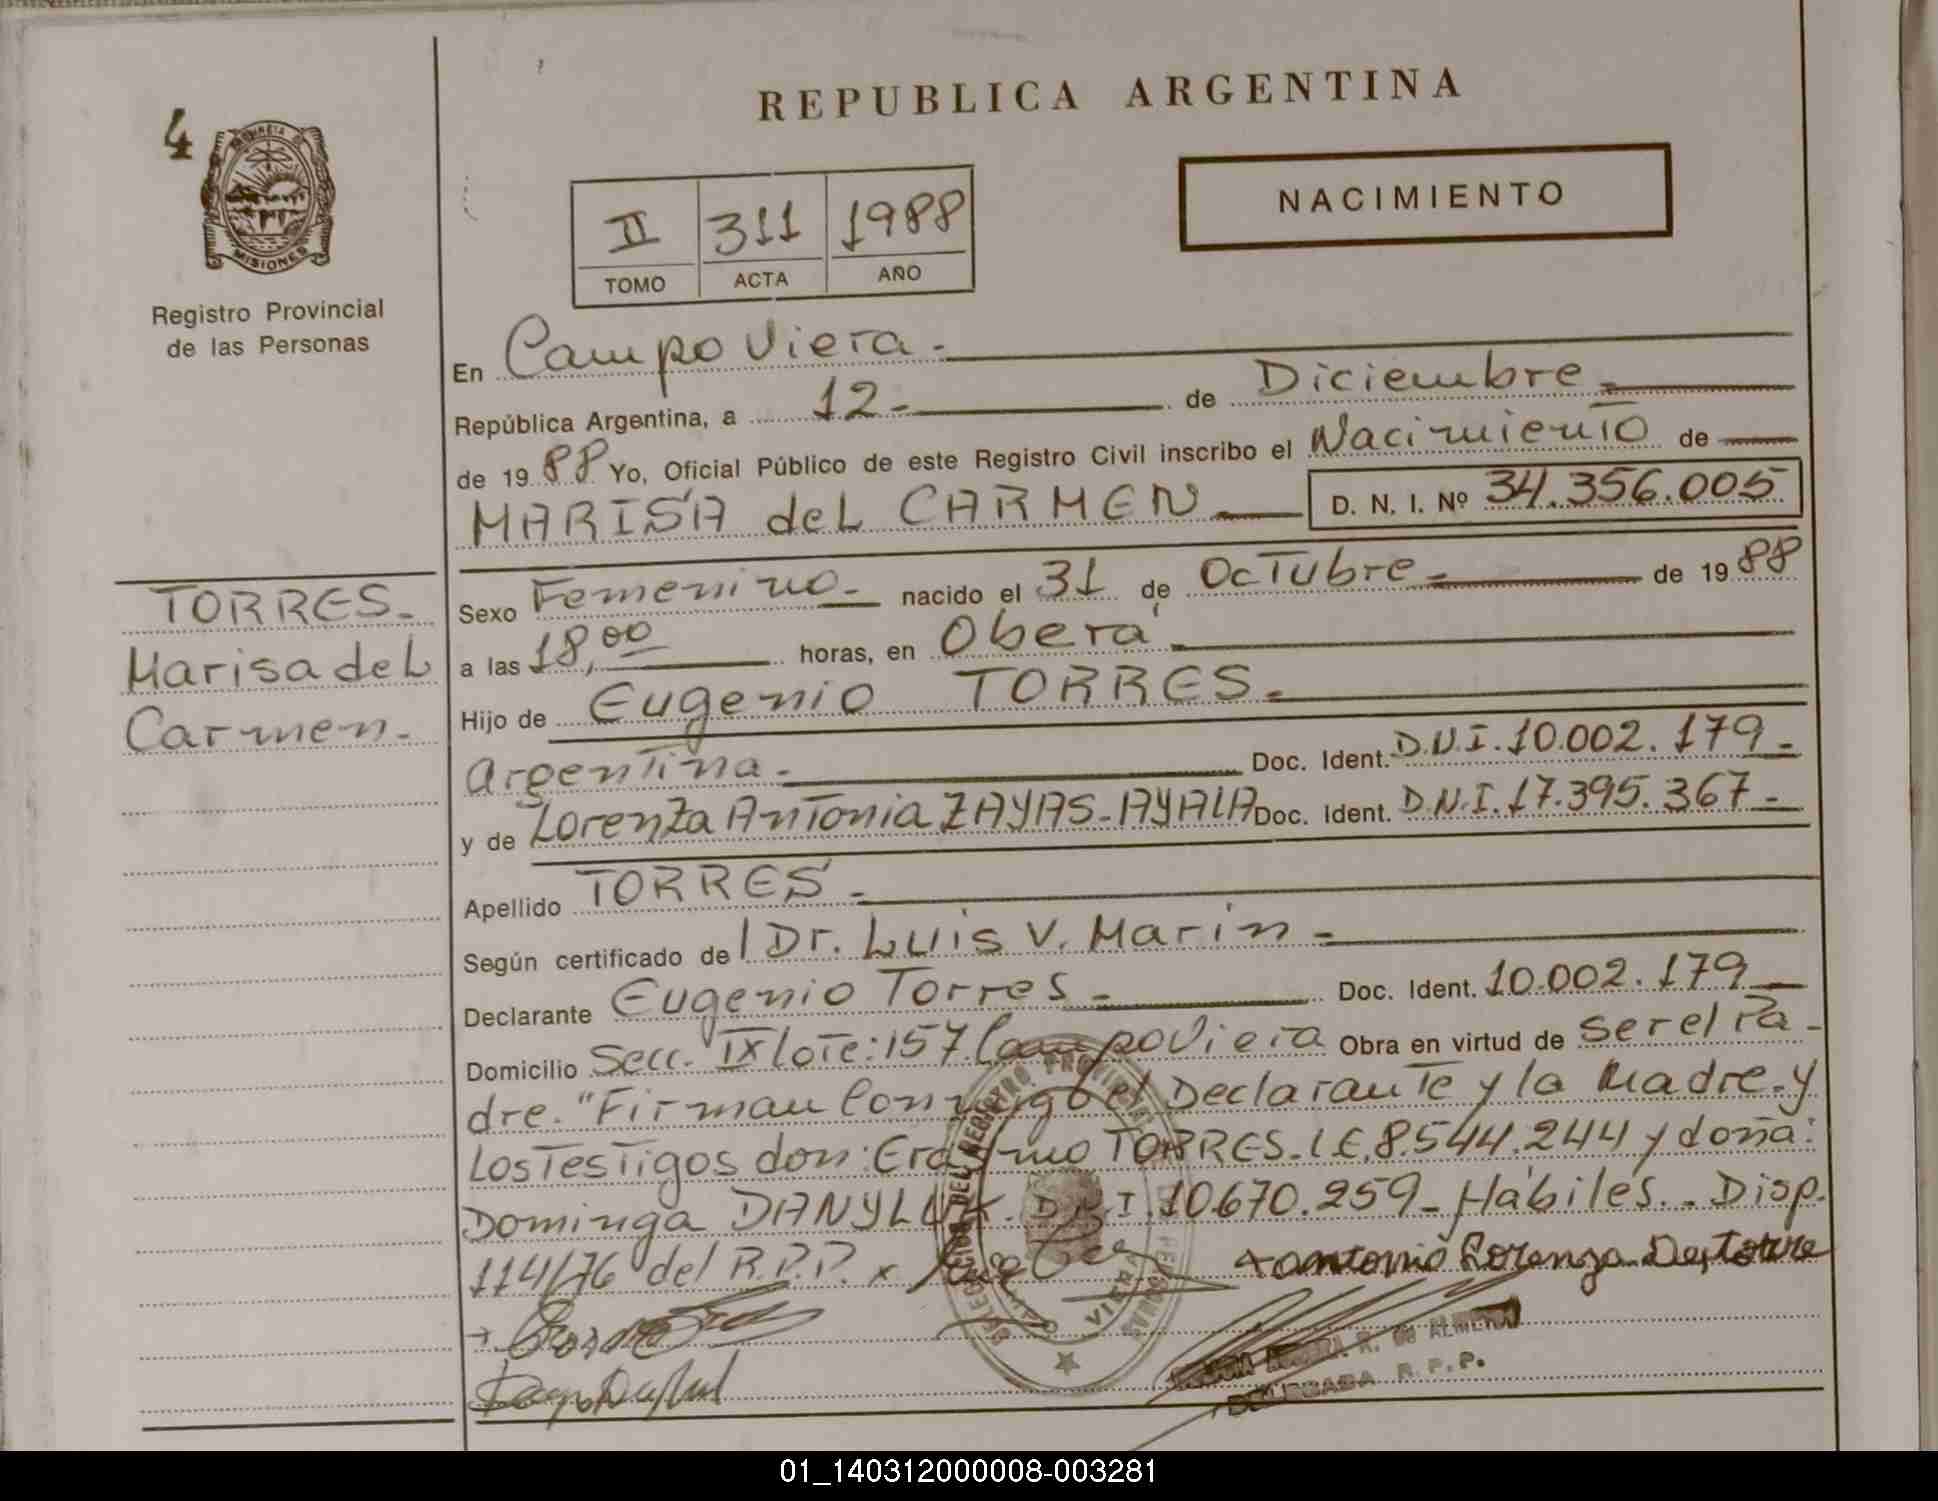 REPUBLICA ARGENTINA
4
PROVINCIA DE
MISIONES
Registro Provincial
de las Personas
II 311 1988
TOMO ACTA AÑO
NACIMIENTO
En Campo Viera.-
República Argentina, a 12- de Diciembre-
de 1988 Yo, Oficial Público de este Registro Civil inscribo el Nacimiento de
MARISA del CARMEN D. N. I. Nº 34.356.005
TORRES-
Marisa del
Carmen.-
Sexo Femenino- nacido el 31 de Octubre- de 1988
a las 18,00 horas, en Oberá
Hijo de Eugenio TORRES.-
argentina.- Doc. Ident. D.N.I. 10.002.179-
y de Lorenza Antonia ZAYAS-AYALA Doc. Ident. D.N.I. 17.395.367-
Apellido TORRES-
Según certificado de Dr. Luis V. Marin-
Declarante Eugenio Torres- Doc. Ident. 10.002.179-
Domicilio Secc. IX lote: 157. Campo Viera Obra en virtud de ser el Pa-
dre. "Firman Conmigo el Declarante y la Madre. y
Los Testigos don: Erasmo TORRES. L.E. 8.544.244 y doña:
Dominga DANYLUK. D.N.I. 10.670.259- Hábiles.- Disp.
114/76 del R.P.P. x
x antonio Lorenza De torre
R. de ALMEIDA
DELEGADA R.P.P.
DELEGACION DEL REGISTRO PROVINCIAL DE LAS PERSONAS
VIERA
01_140312000008-003281